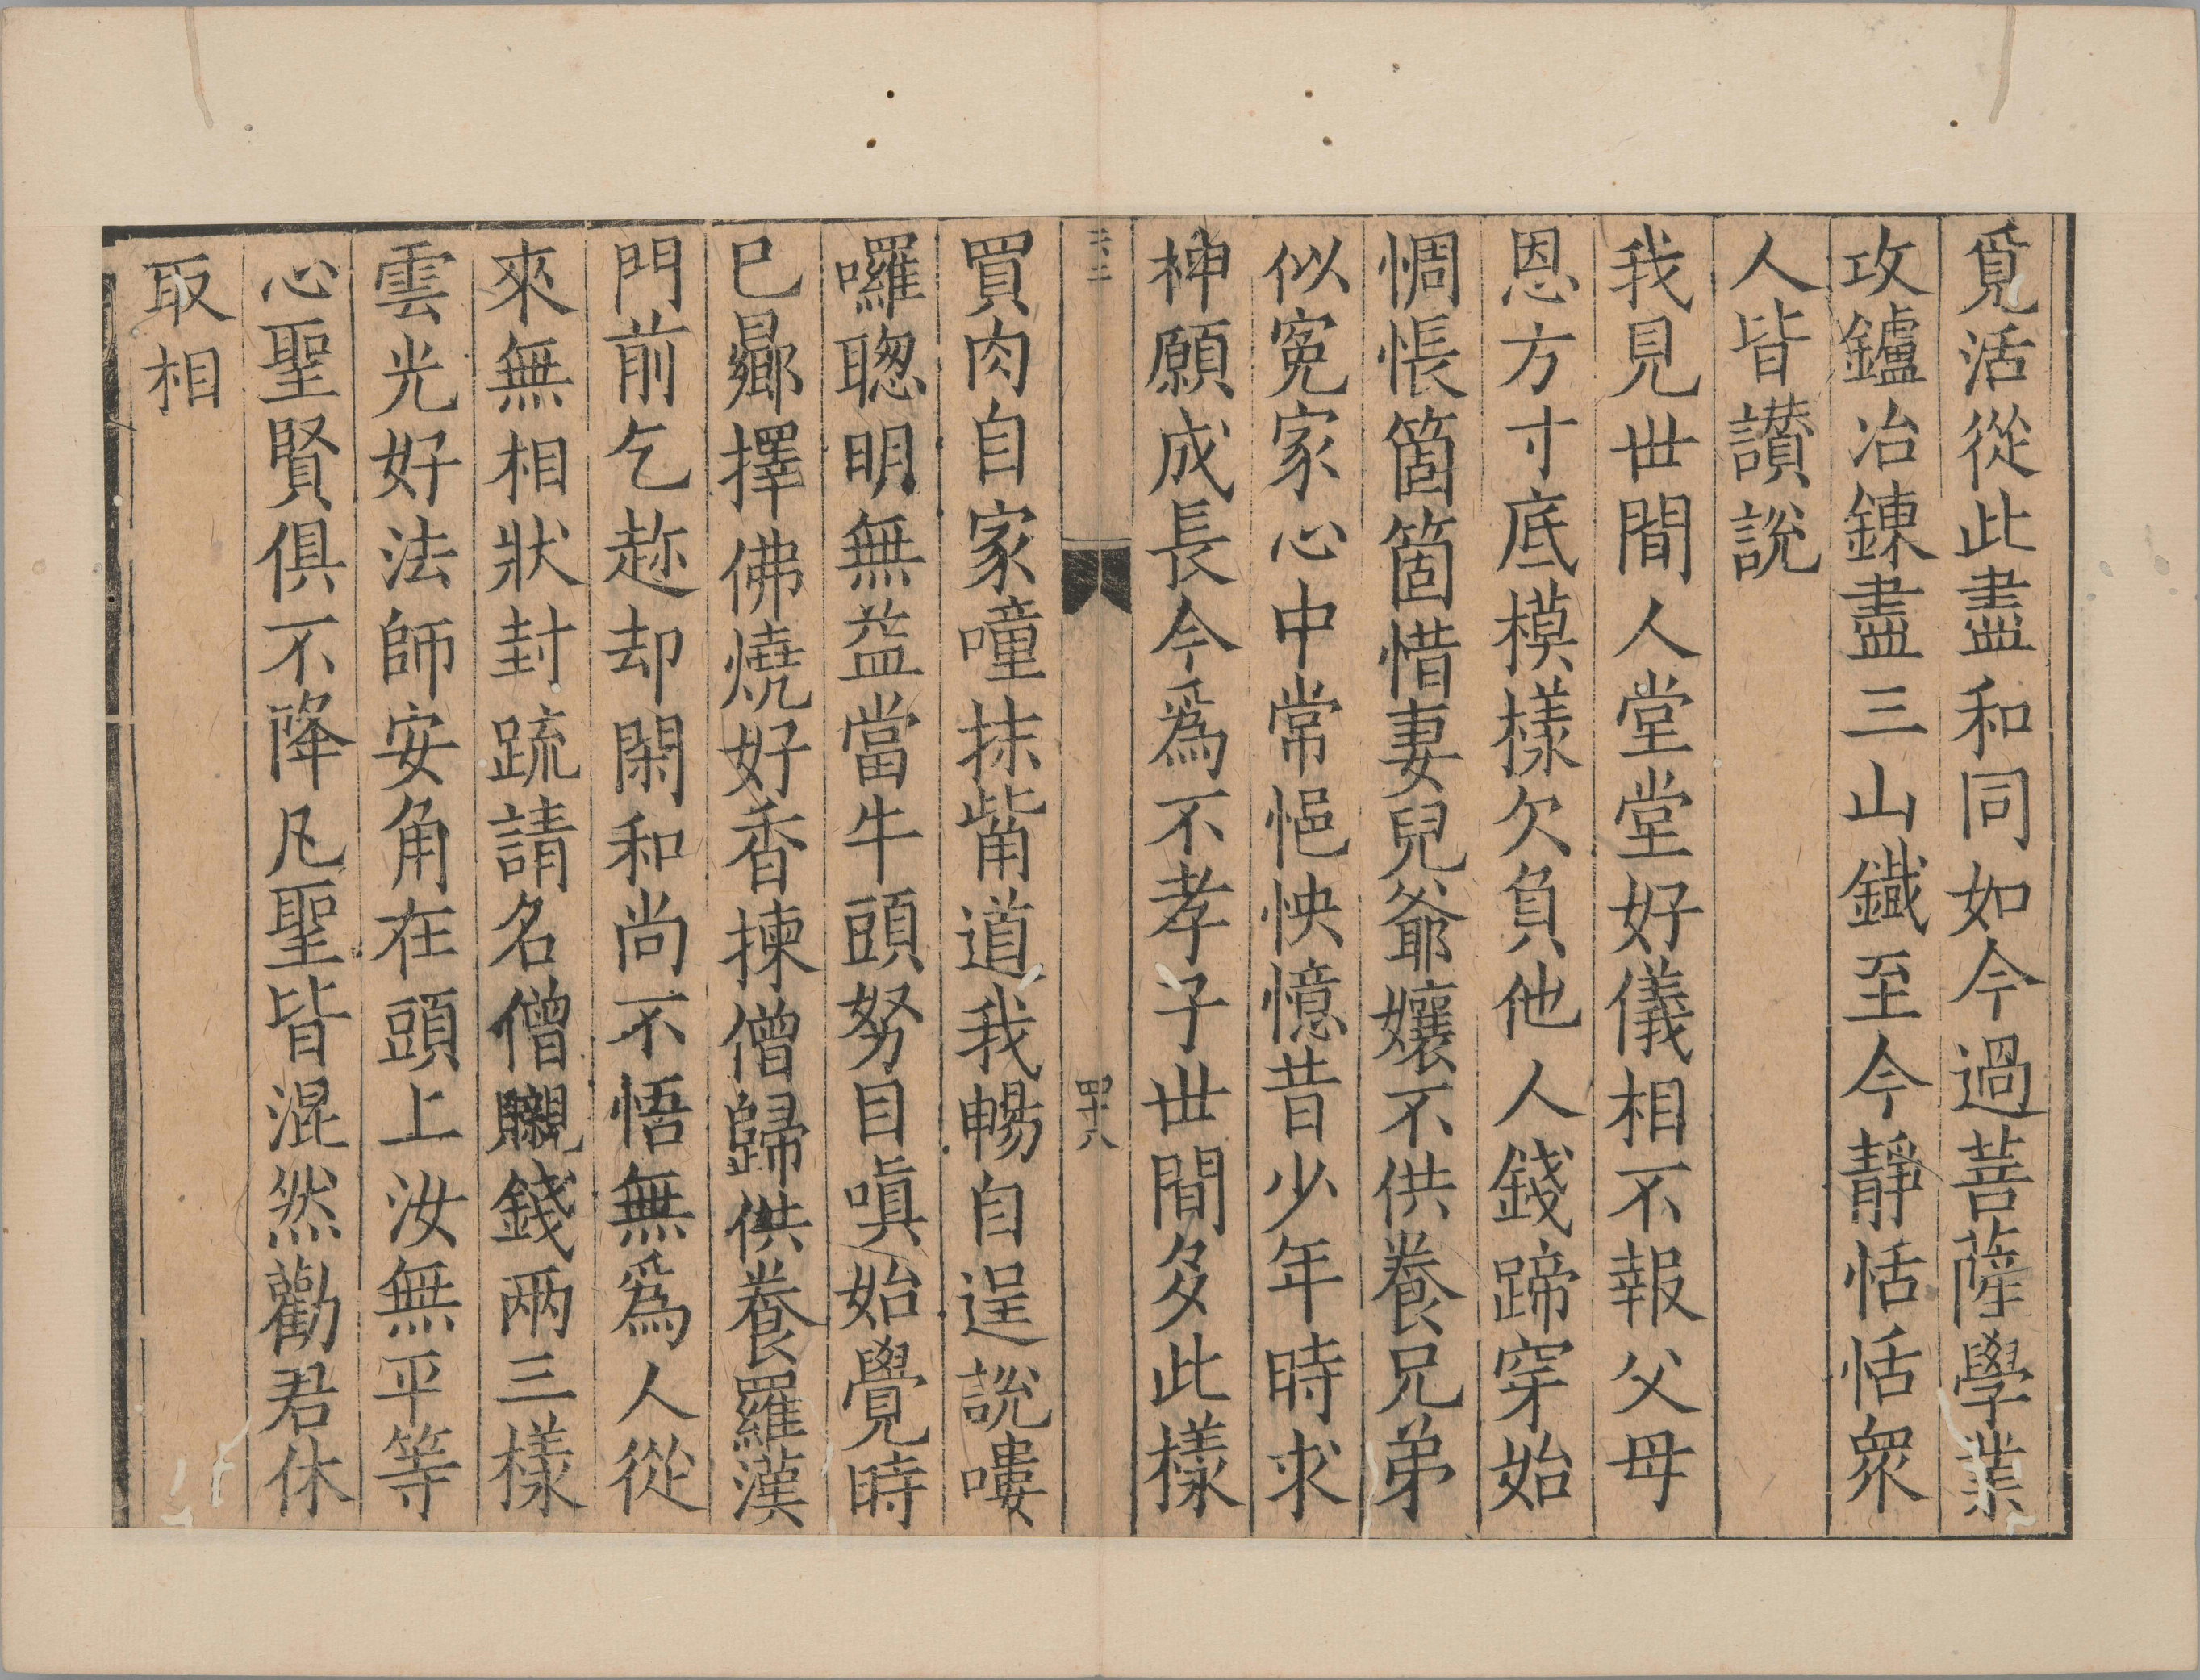 覓活從此盡和同如今過菩薩學業
攻鑪冶鍊盡三山鐵至今靜恬恬衆
人皆讃說
我見世間人堂堂好儀相不報父母
恩方寸底模樣欠負他人錢蹄穿始
惆悵箇箇惜妻兒爺孃不供養兄弟
似寃家心中常悒怏憶昔少年時求
神願成長今爲不孝子世間多此樣
四十八
買肉自家噇抹觜道我暢自逞說嘍
囉聰明無益當牛頭努目嗔始覺時
已曏擇佛燒好香揀僧歸供養羅漢
門前乞趂却閑和尚不悟無爲人從
來無相狀封疏請名僧䞋錢兩三樣
雲光好法師安角在頭上汝無平等
心聖賢俱不降凡聖皆混然勸君休
取相